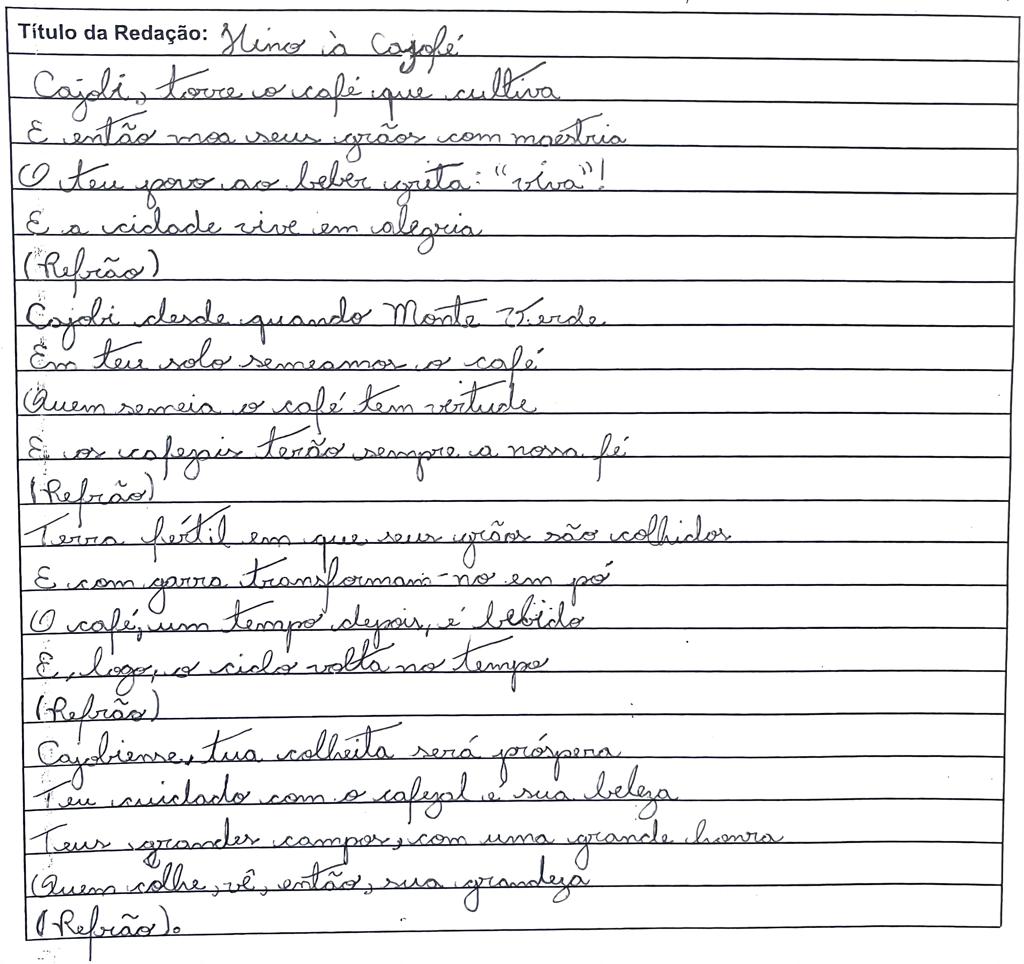 Título da Redação: Hino à Cajofé
Cajobi, torre o café que cultiva
E então moa seus grãos com maestria
O teu povo ao beber grita: "viva"!
E a cidade vive em alegria
(Refrão)
Cajobi desde quando Monte Verde.
Em teu solo semeamos o café
Quem semeia o café tem virtude
E os cafezais terão sempre a nossa fé
(Refrão)
Terra fértil em que seus grãos são colhidos
E com garra transformam-no em pó
O café, um tempo depois, é bebido
E, logo, o ciclo volta no tempo
(Refrão)
Cajobiense, tua colheita será próspera
Teu cuidado com o cafezal é sua beleza
Teus grandes campos, com uma grande honra
Quem colhe, vê, então, sua grandeza
(Refrão).